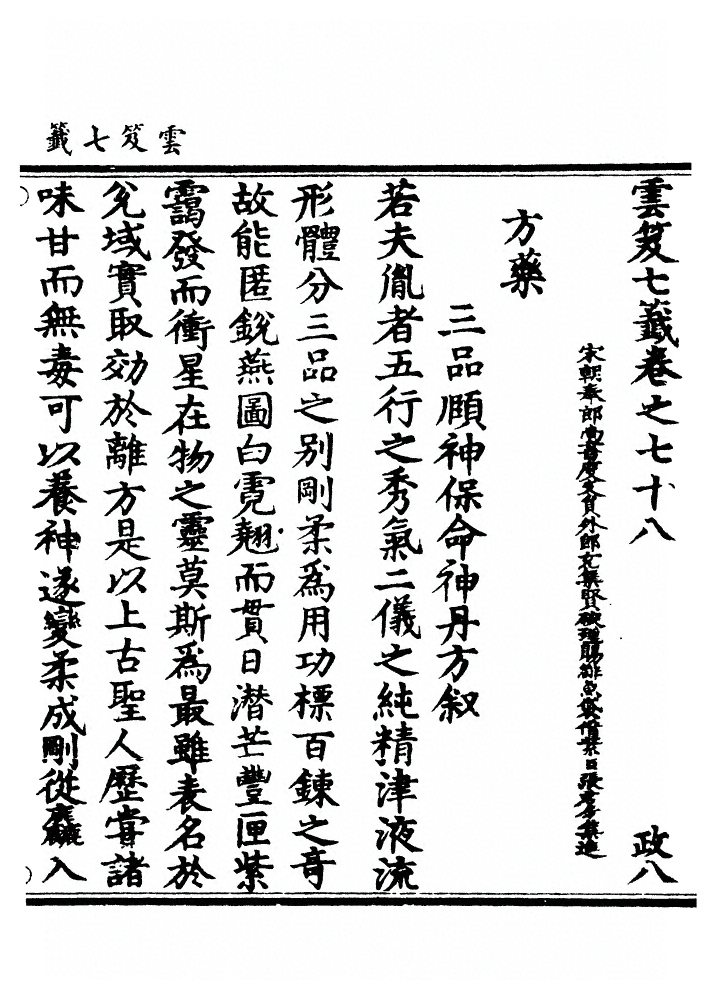 雲笈七籤
雲笈七籤卷之七十八 政八
宋朝奉郎尚書度支員外郎充集賢校理賜緋魚袋借紫臣張君房集進
方藥
三品頤神保命神丹方叙
若夫胤者五行之秀氣二儀之純精津液流
形體分三品之別剛柔為用功標百鍊之奇
故能匿銳燕圖白霓翹而貫日潜芒豐匣紫
靄發而衝星在物之靈莫斯為最雖表名於
兊域實取効於離方是以上古聖人歷嘗諸
味甘而無毒可以養神遂變柔成剛從麤入